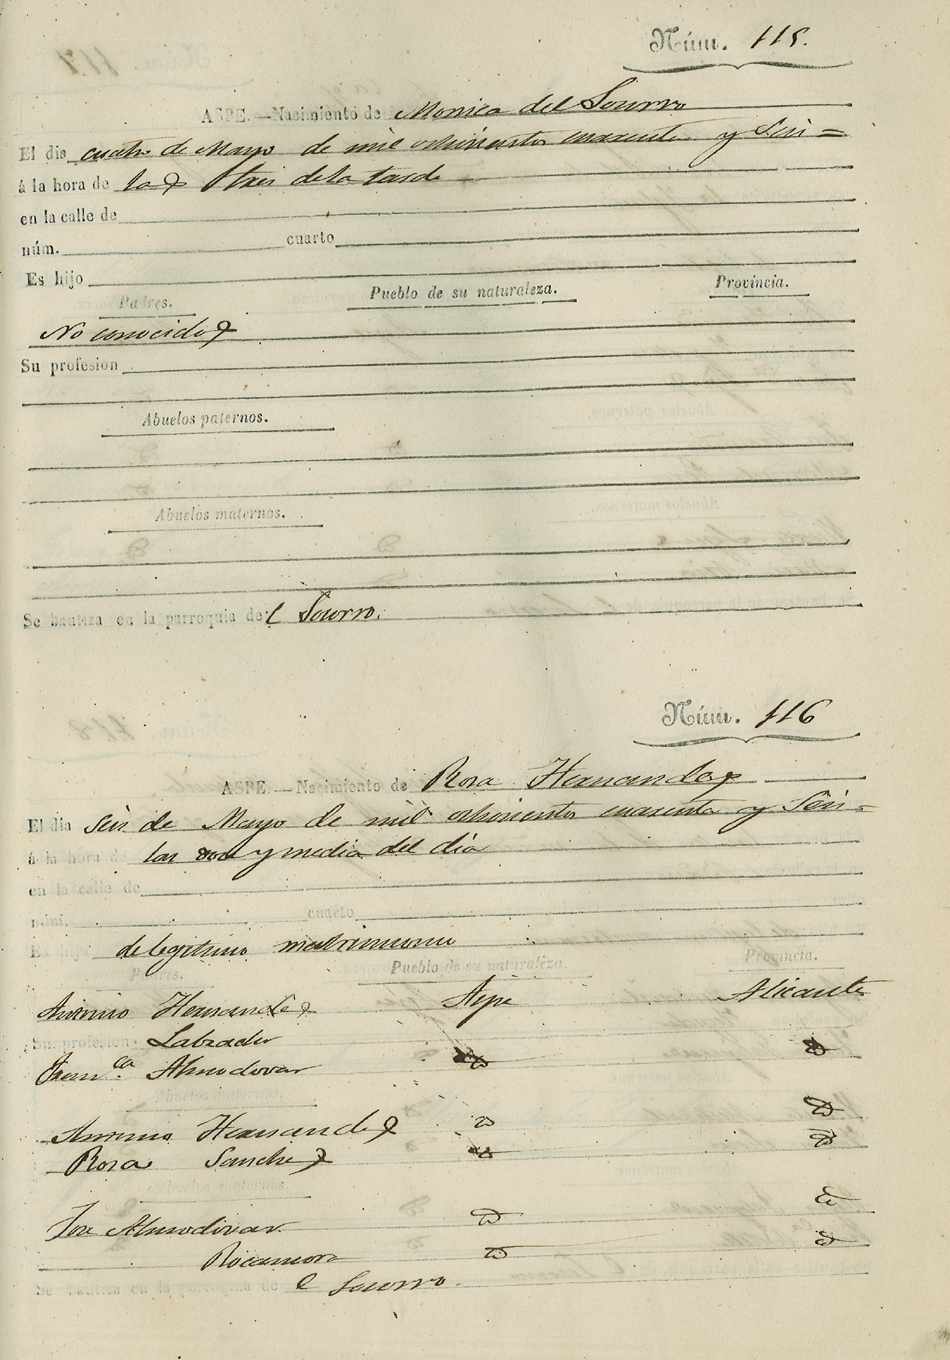 Núm. 115.
ASPE.—Nacimiento de Monica del Socorro
El dia cuatro de Mayo de mil ochocientos cuarenta y Seis=
á la hora de las tres de la tarde
en la calle de
núm. cuarto
Es hijo
Padres. Pueblo de su naturaleza. Provincia.
No conocidos
Su profesion
Abuelos paternos.
Abuelos maternos.
Se bautiza en la parroquia del Socorro.
Núm. 116
ASPE.—Nacimiento de Rosa Hernandez
El dia seis de Mayo de mil ochocientos cuarenta y Seis=
á la hora de las doce y media del dia
en la calle de
núm. cuarto
Es hijo de legitimo matrimonio
Padres. Pueblo de su naturaleza. Provincia.
Antonio Hernandez Aspe Alicante
Su profesion Labrador
Fran.ca Almodovar
Abuelos paternos.
Antonio Hernandez
Rosa Sanchez
Abuelos maternos.
Jose Almodovar
Rocamora
Se bautiza en la parroquia de el Socorro.